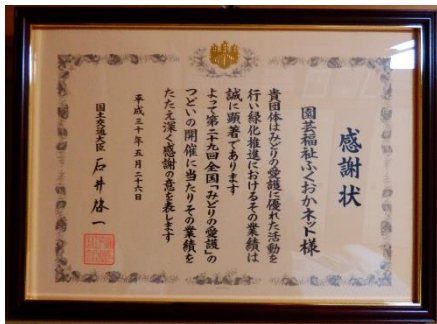 感謝状
園芸福祉ふくおかネット様
貴団体はみどりの愛護に優れた活動を
行い緑化推進におけるその業績は
誠に顕著であります
よって第二十九回全国「みどりの愛護」の
つどいの開催に当たりその業績を
たたえ深く感謝の意を表します
平成三十年五月二十六日
国土交通大臣 石井啓一